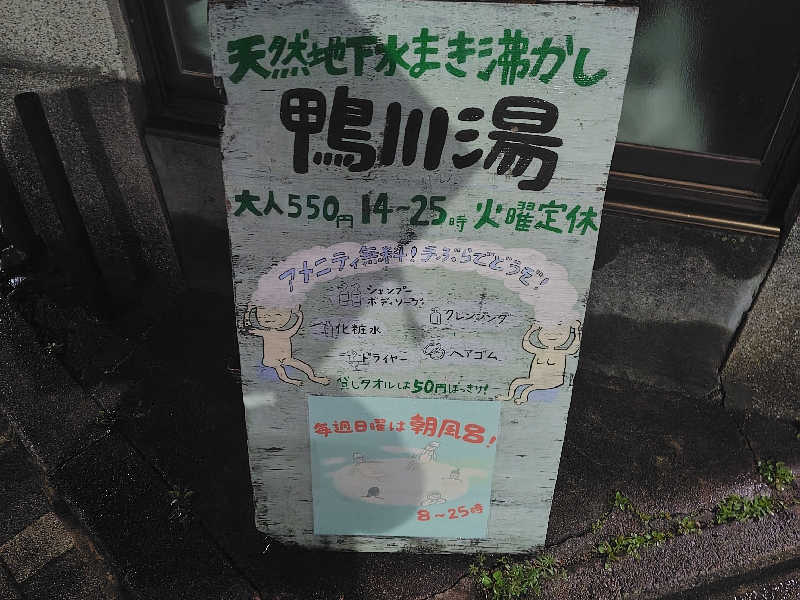 天然地下水まき沸かし
鴨川湯
大人550円 14~25時 火曜定休
アメニティ無料!手ぶらでどうぞ!
シャンプー
ボディソープ
クレンジング
化粧水
ドライヤー
ヘアゴム
貸しタオルは50円ぽっきり!
毎週日曜は朝風呂!
8~25時